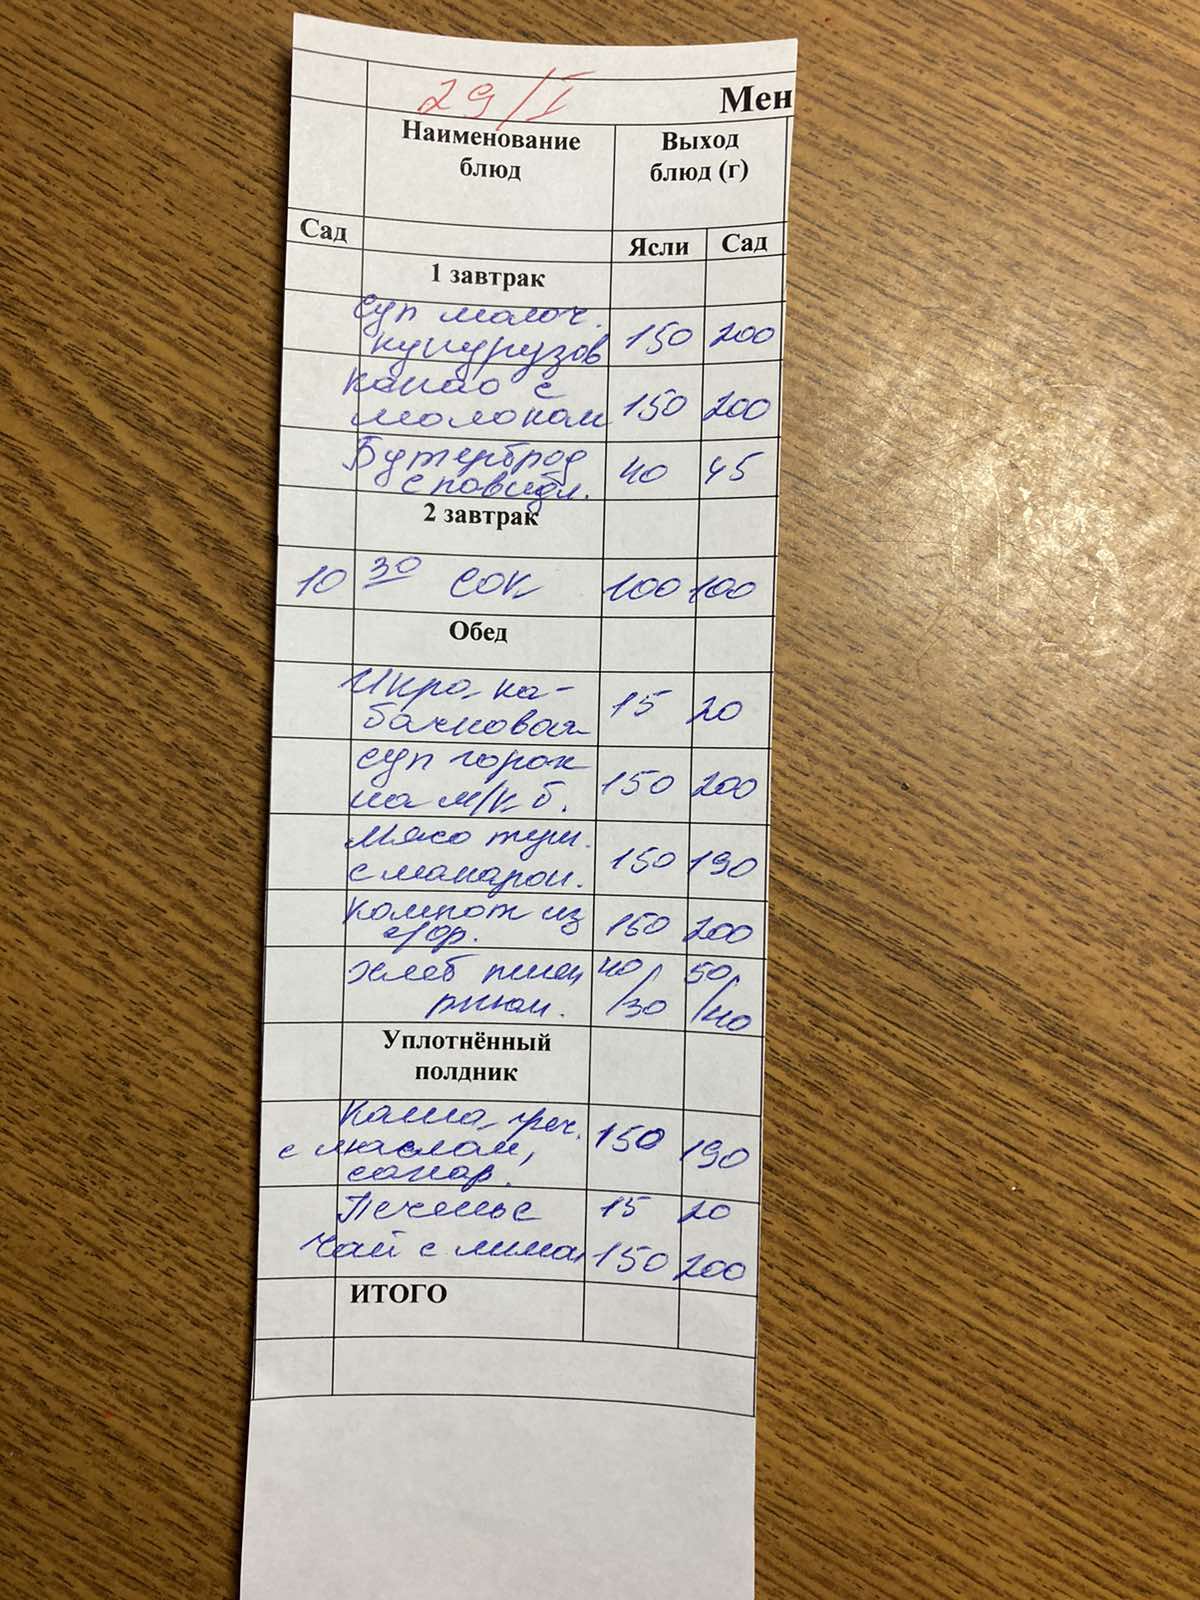 29/I
Мен
Наименование
блюд
Выход
блюд (г)
Сад
Ясли
Сад
1 завтрак
Суп молоч.
кукурузов
150
200
Какао с
молоком
150
200
Бутерброд
с повидл.
40
45
2 завтрак
10 30 сок
100
100
Обед
Икра ка-
бачковая
15
20
Суп горох
на м/к б.
150
200
Мясо туш.
с макарон.
150
190
Компот из
с/фр.
150
200
Хлеб пшен
ржан.
40/30
50/40
Уплотнённый
полдник
Каша греч.
с маслом,
сахар.
150
190
Печенье
15
20
Чай с лимон
150
200
ИТОГО